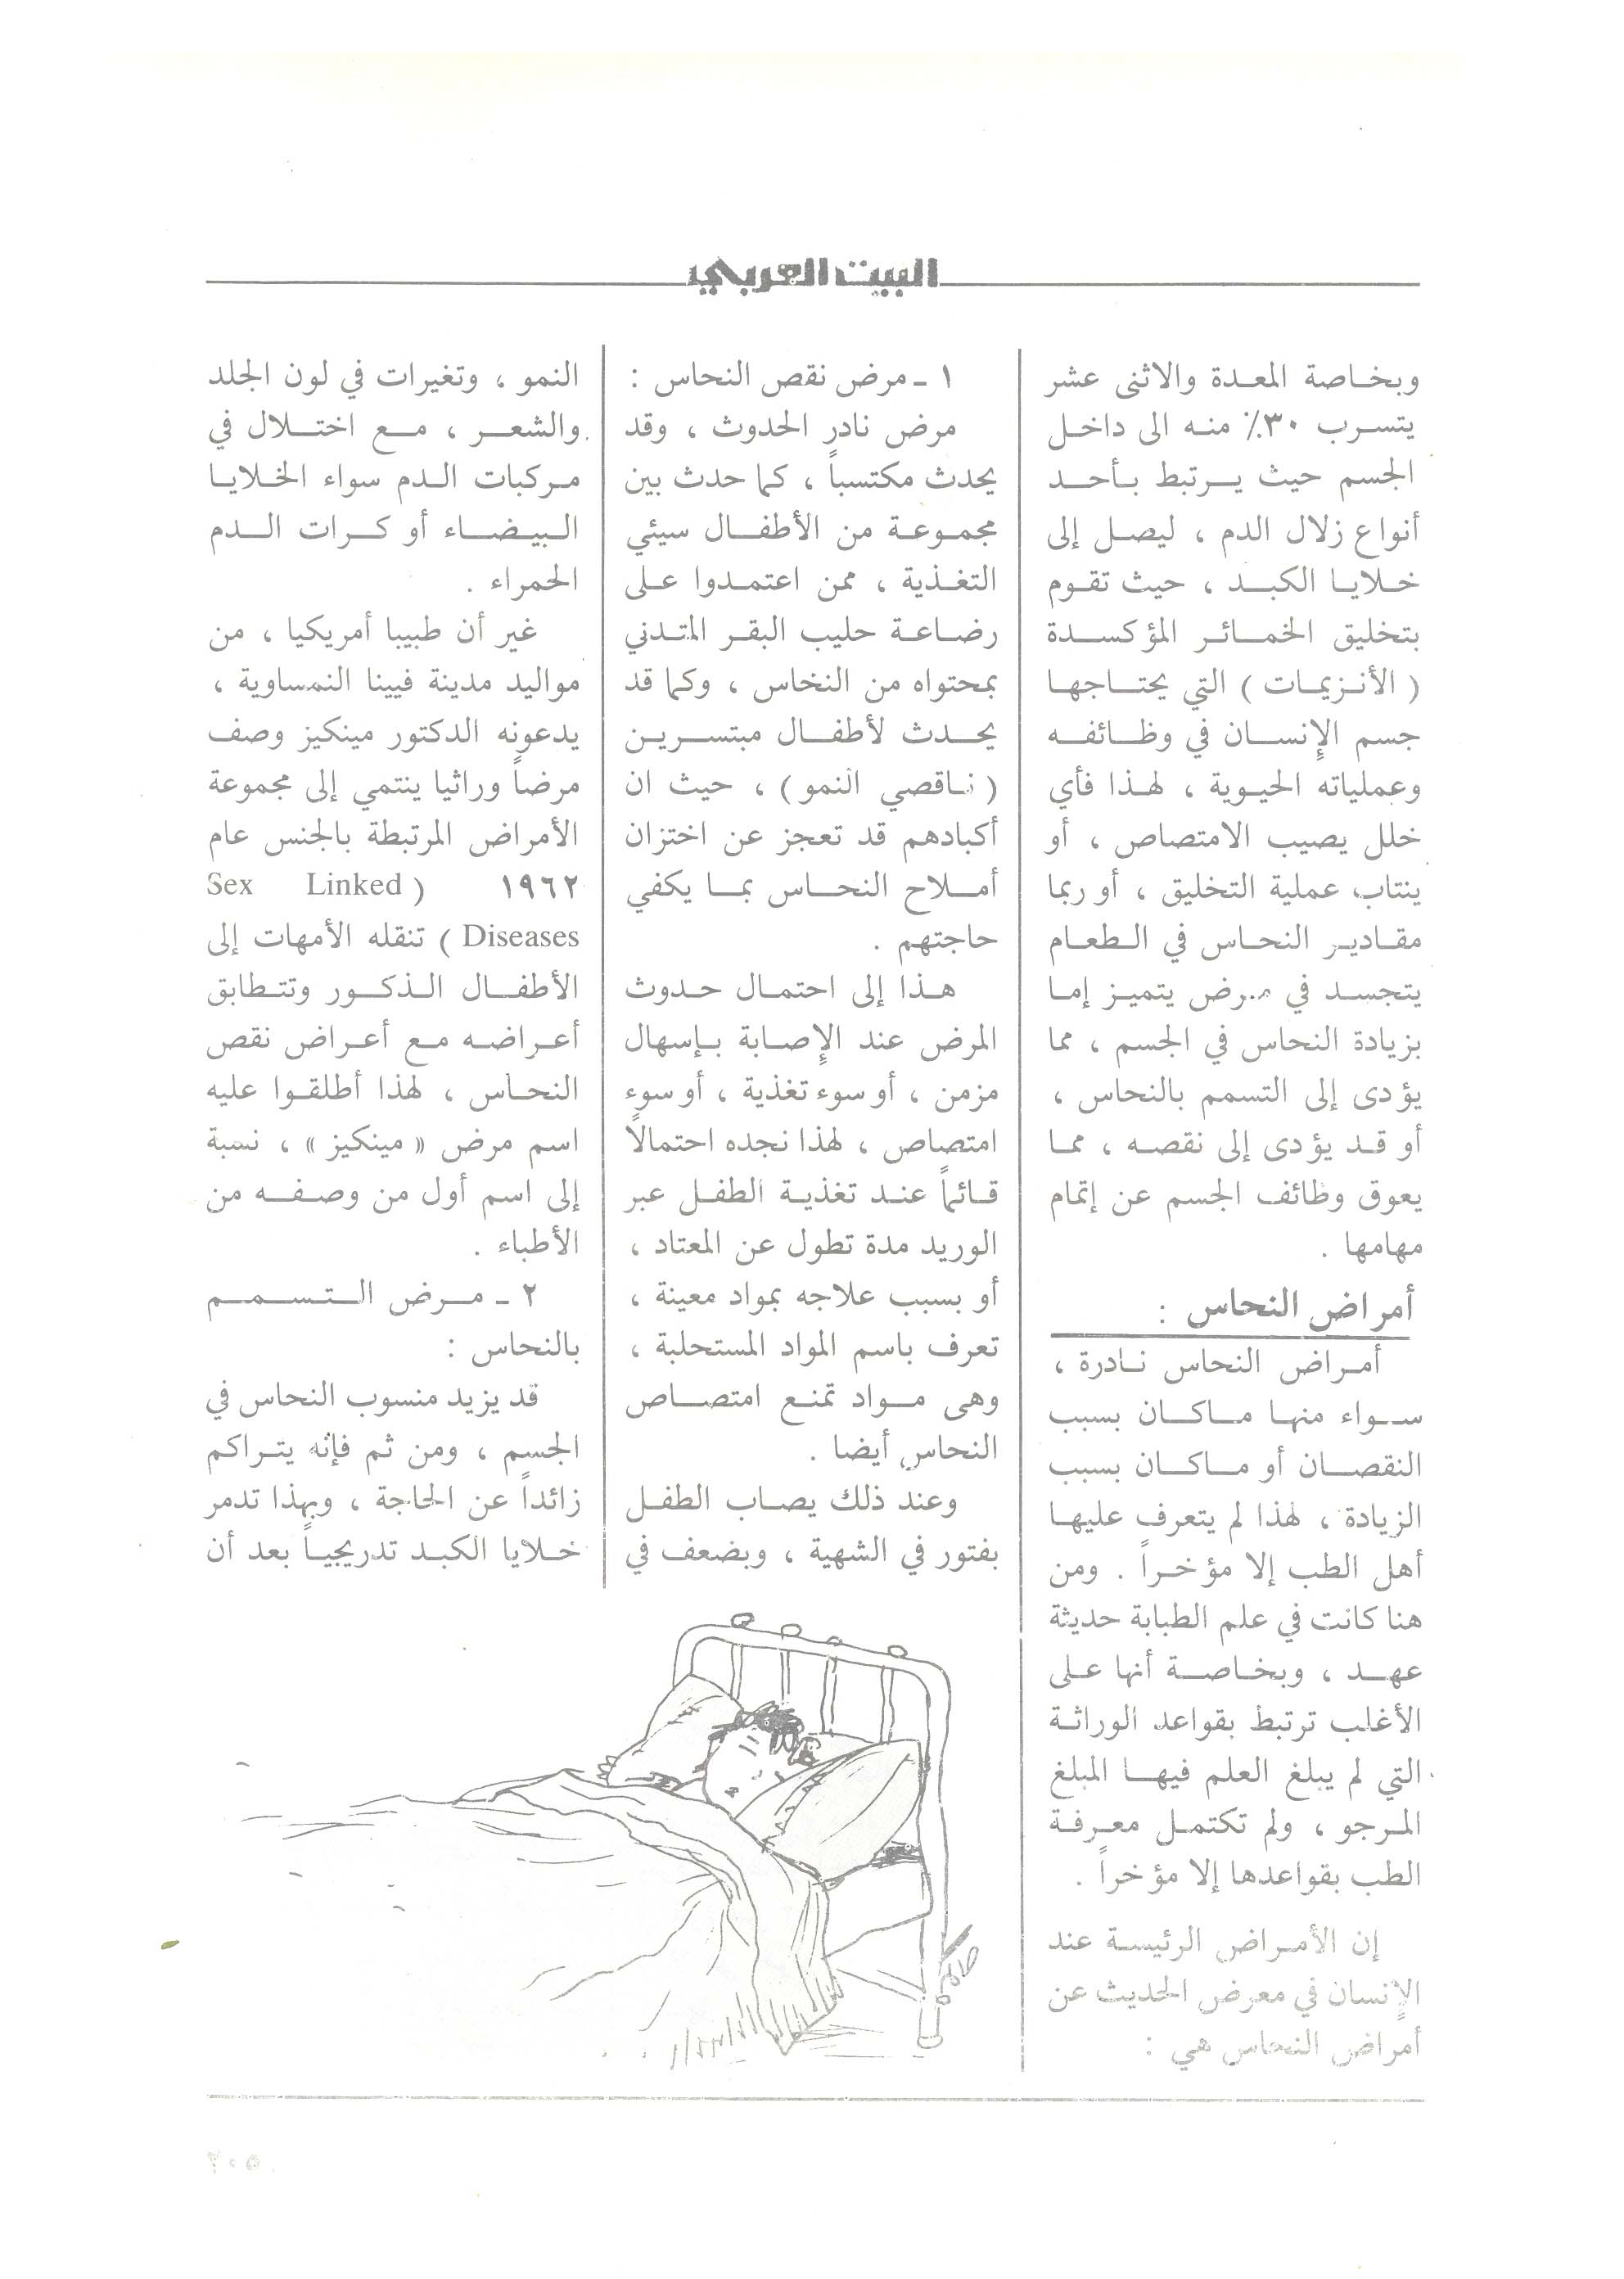 البيت العربي
وبخاصة المعدة والاثنى عشر
يتسرب ٣٠٪ منه الى داخل
الجسم حيث يرتبط بأحد
أنواع زلال الدم ، ليصل إلى
خلايا الكبد ، حيث تقوم
بتخليق الخمائر المؤكسدة
( الأنزيمات ) التي يحتاجها
جسم الإنسان في وظائفه
وعملياته الحيوية ، لهذا فأي
خلل يصيب الامتصاص ، أو
ينتاب عملية التخليق ، أو ربما
مقادير النحاس في الطعام
يتجسد في مرض يتميز إما
بزيادة النحاس في الجسم ، مما
يؤدى إلى التسمم بالنحاس ،
أو قد يؤدى إلى نقصه ، مما
يعوق وظائف الجسم عن إتمام
مهامها .
أمراض النحاس :
أمراض النحاس نادرة ،
سواء منها ماكان بسبب
النقصان أو ماكان بسبب
الزيادة ، لهذا لم يتعرف عليها
أهل الطب إلا مؤخراً . ومن
هنا كانت في علم الطبابة حديثة
عهد ، وبخاصة أنها على
الأغلب ترتبط بقواعد الوراثة
التي لم يبلغ العلم فيها المبلغ
المرجو ، ولم تكتمل معرفة
الطب بقواعدها إلا مؤخراً .
إن الأمراض الرئيسة عند
الإنسان في معرض الحديث عن
أمراض النحاس هي :
١ ـ مرض نقص النحاس :
مرض نادر الحدوث ، وقد
يحدث مكتسباً ، كما حدث بين
مجموعة من الأطفال سيئي
التغذية ، ممن اعتمدوا على
رضاعة حليب البقر المتدني
بمحتواه من النخاس ، وكما قد
يحدث لأطفال مبتسرين
( ناقصي النمو ) ، حيث ان
أكبادهم قد تعجز عن اختزان
أملاح النحاس بما يكفي
حاجتهم .
هذا إلى احتمال حدوث
المرض عند الإصابة بإسهال
مزمن ، أو سوء تغذية ، أو سوء
امتصاص ، لهذا نجده احتمالاً
قائماً عند تغذية الطفل عبر
الوريد مدة تطول عن المعتاد ،
أو بسبب علاجه بمواد معينة ،
تعرف باسم المواد المستحلبة ،
وهى مواد تمنع امتصاص
النحاس أيضا .
وعند ذلك يصاب الطفل
بفتور في الشهية ، وبضعف في
النمو ، وتغيرات في لون الجلد
والشعر ، مع اختلال في
مركبات الدم سواء الخلايا
البيضاء أو كرات الدم
الحمراء .
غير أن طبيبا أمريكيا ، من
مواليد مدينة فيينا النمساوية ،
يدعونه الدكتور مينكيز وصف
مرضاً وراثيا ينتمي إلى مجموعة
الأمراض المرتبطة بالجنس عام
١٩٦٢ ( Sex Linked
Diseases ) تنقله الأمهات إلى
الأطفال الذكور وتتطابق
أعراضه مع أعراض نقص
النحاس ، لهذا أطلقوا عليه
اسم مرض « مينكيز » ، نسبة
إلى اسم أول من وصفه من
الأطباء .
٢ ـ مرض التسمم
بالنحاس :
قد يزيد منسوب النحاس في
الجسم ، ومن ثم فإنه يتراكم
زائداً عن الحاجة ، وبهذا تدمر
خلايا الكبد تدريجياً بعد أن
٢٠٥